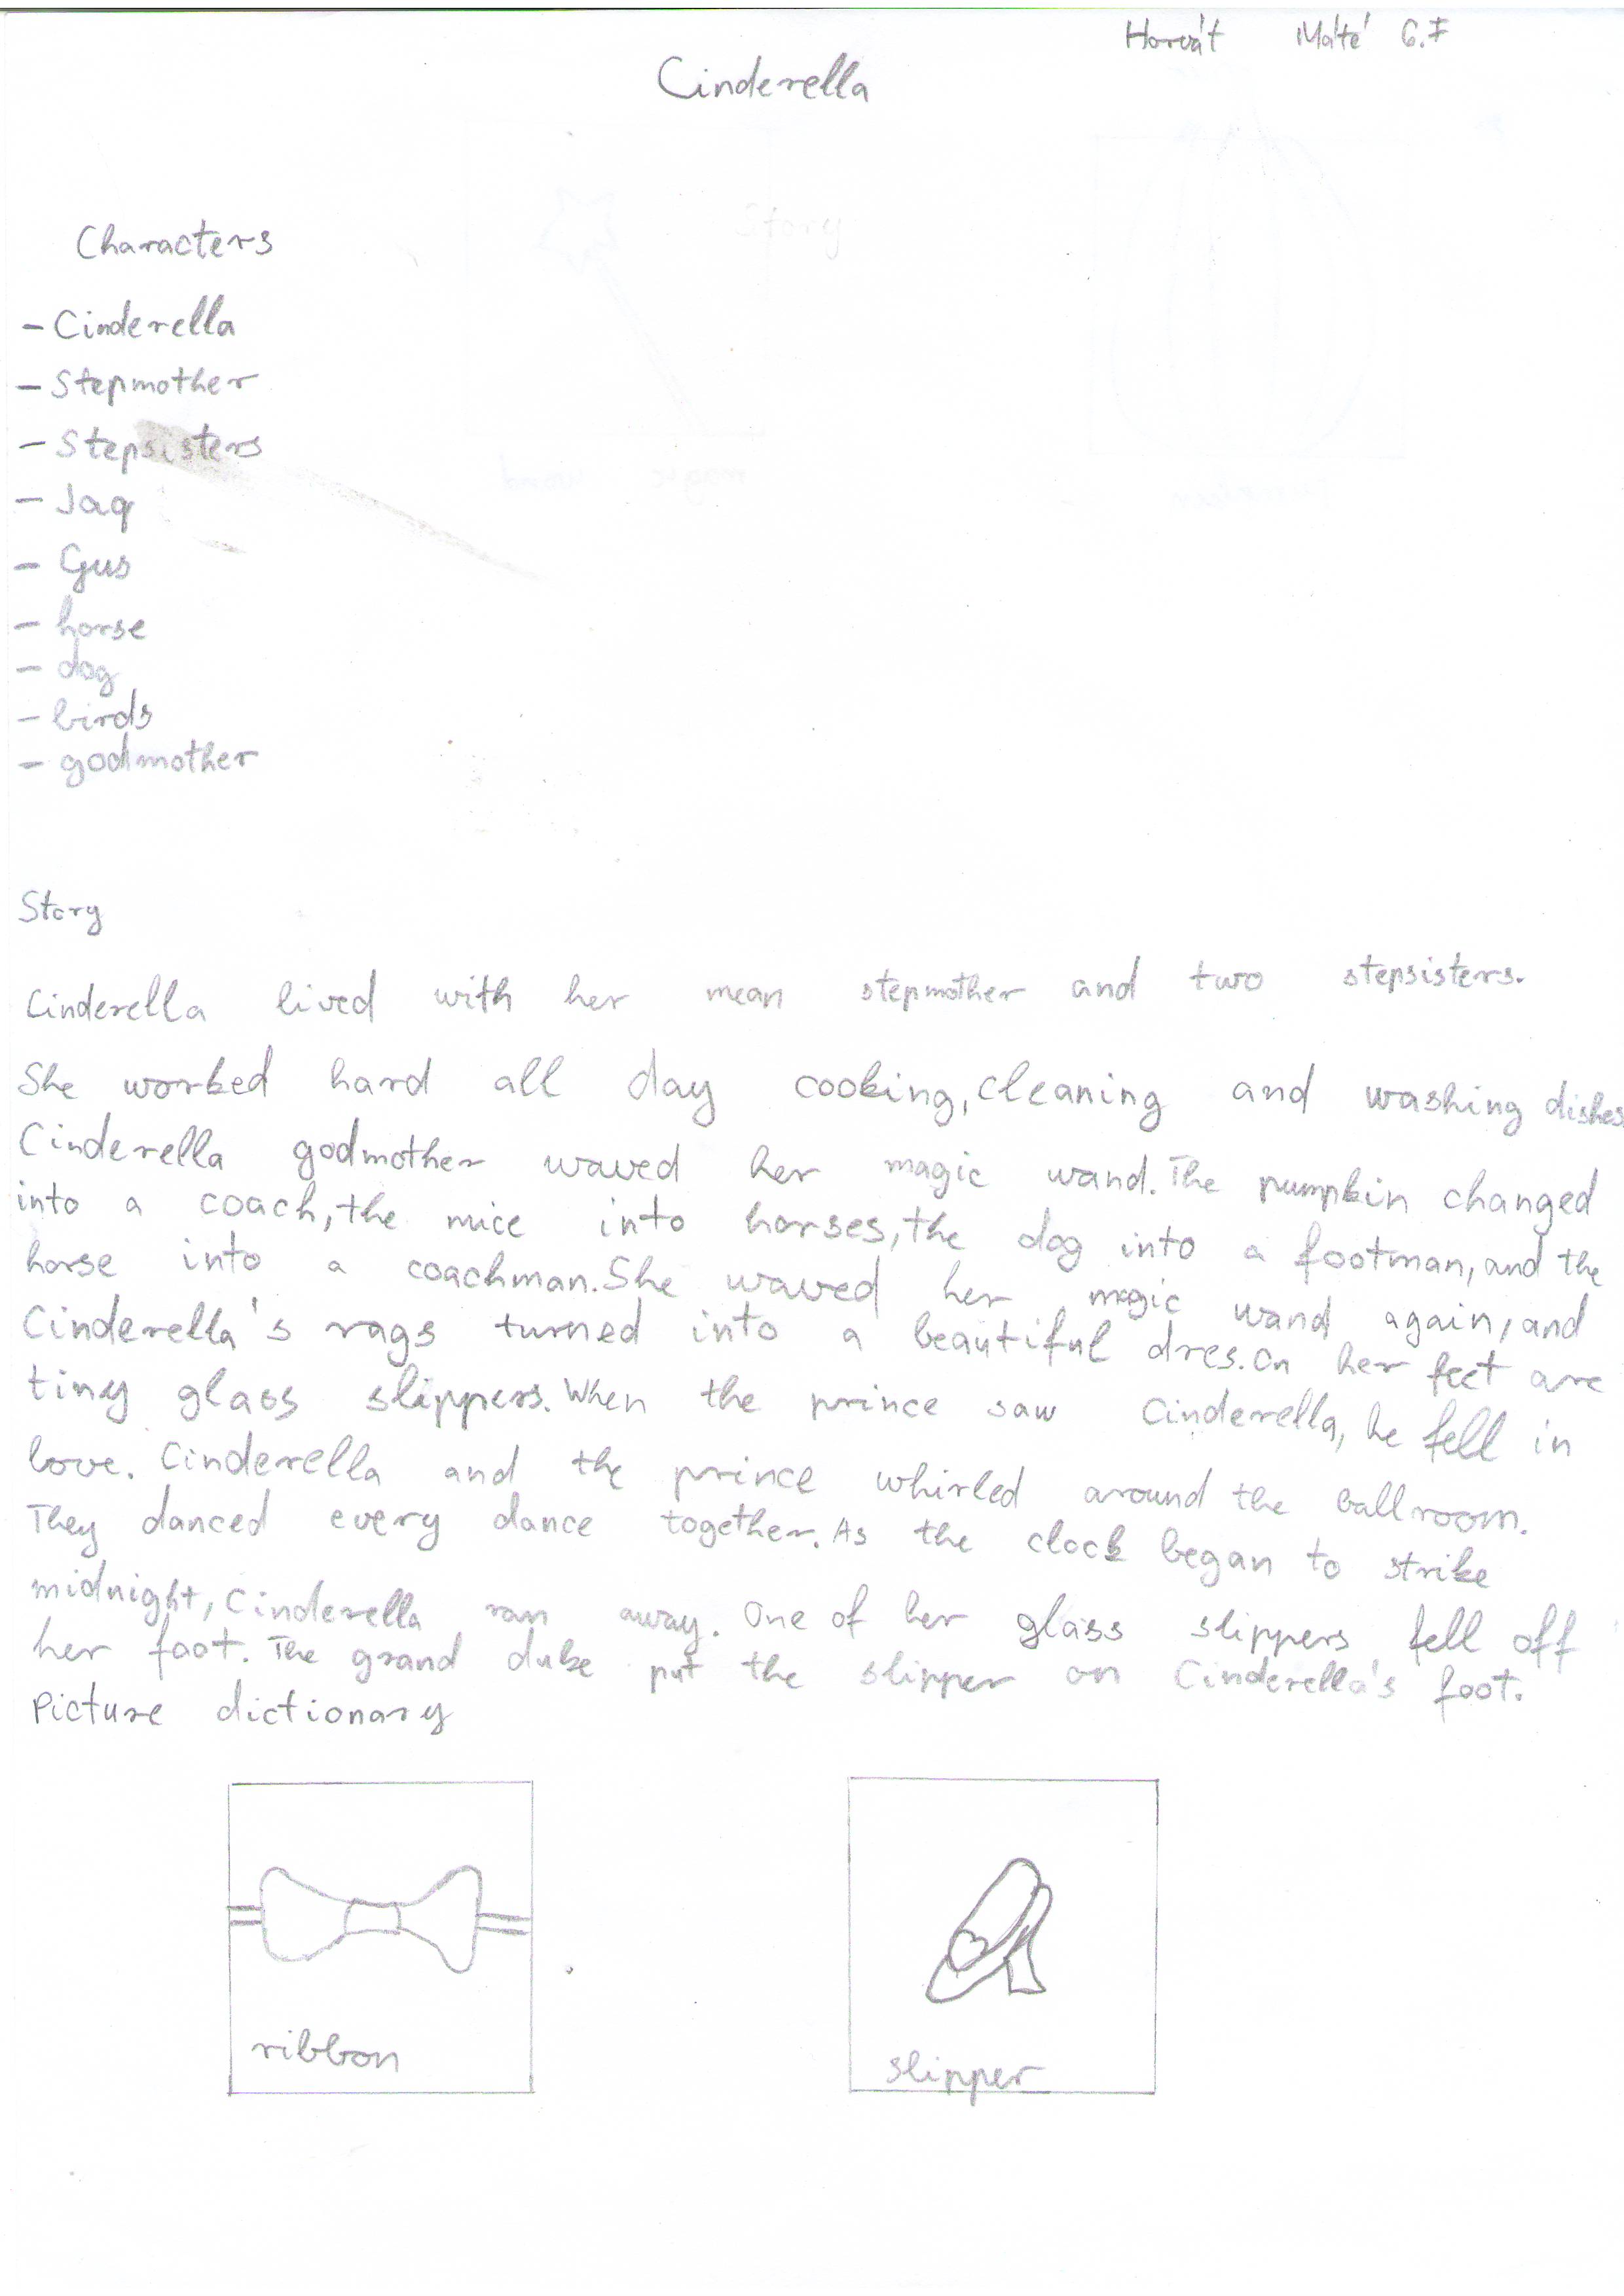 Horvát Máté 6.F
Cinderella
Story
Characters
- Cinderella
- Stepmother
- Stepsisters
- Jaq
- Gus
- horse
- dog
- birds
- godmother
magic wand
Story
Cinderella lived with her mean stepmother and two stepsisters.
She worked hard all day cooking, cleaning and washing dishes
Cinderella godmother waved her magic wand. The pumpkin changed
into a coach, the mice into horses, the dog into a footman, and the
horse into a coachman. She waved her magic wand again, and
Cinderella's rags turned into a beautiful dres. On her feet are
tiny glass slippers. When the prince saw Cinderella, he fell in
love. Cinderella and the prince whirled around the ballroom.
They danced every dance together. As the clock began to strike
midnight, Cinderella ran away. One of her glass slippers fell off
her foot. The grand duke put the slipper on Cinderella's foot.
Picture dictionary
ribbon
slipper